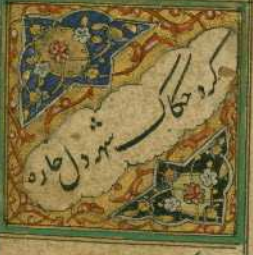 کرد حکاک شهر دل خاره